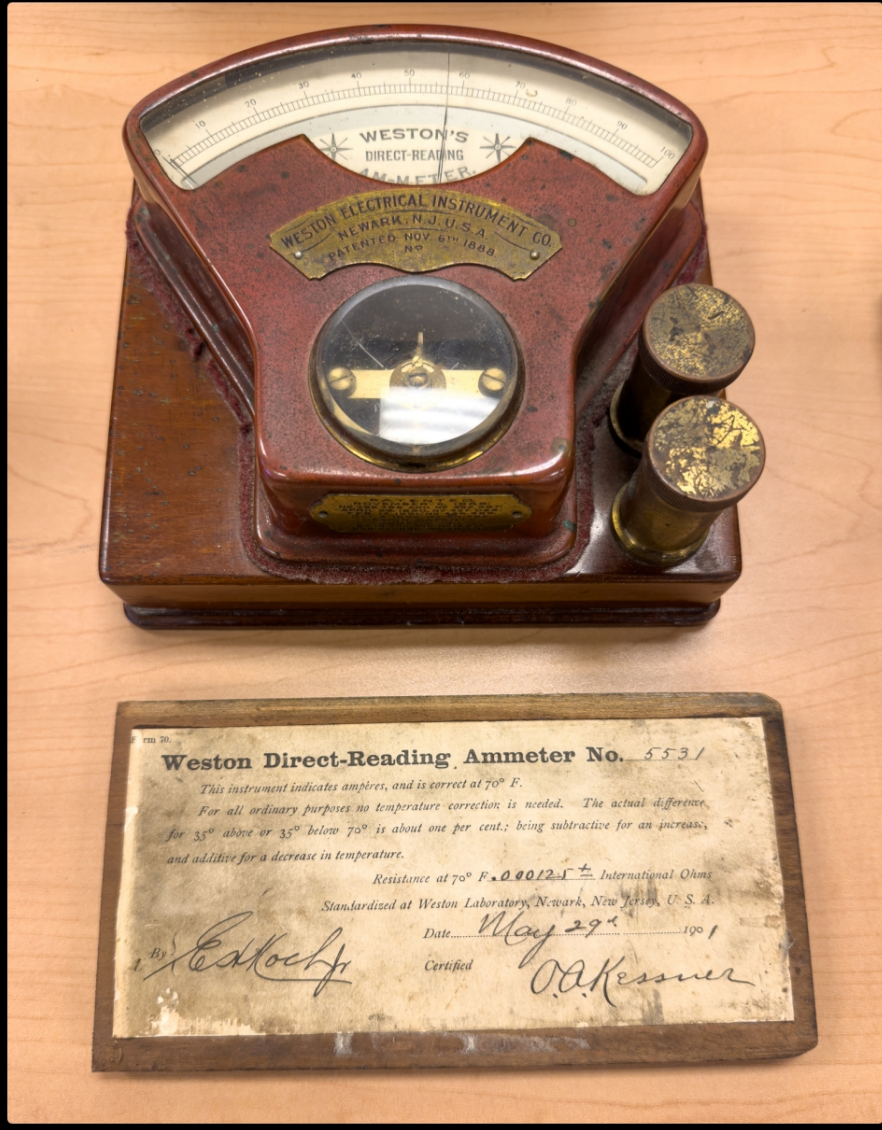 0 10 20 30 40 50 60 70 80 90 100
WESTON'S
DIRECT-READING
AM-METER.
WESTON ELECTRICAL INSTRUMENT CO.
NEWARK, N.J. U.S.A.
PATENTED NOV. 6TH 1888
No
PATENTED
Form 70.
Weston Direct-Reading Ammeter No. 5531
This instrument indicates ampères, and is correct at 70° F.
For all ordinary purposes no temperature correction is needed. The actual difference
for 35° above or 35° below 70° is about one per cent.; being subtractive for an increase,
and additive for a decrease in temperature.
Resistance at 70° F .000125± International Ohms
Standardized at Weston Laboratory, Newark, New Jersey, U. S. A.
Date May 29th 1901
By
Certified O.A. Kessner